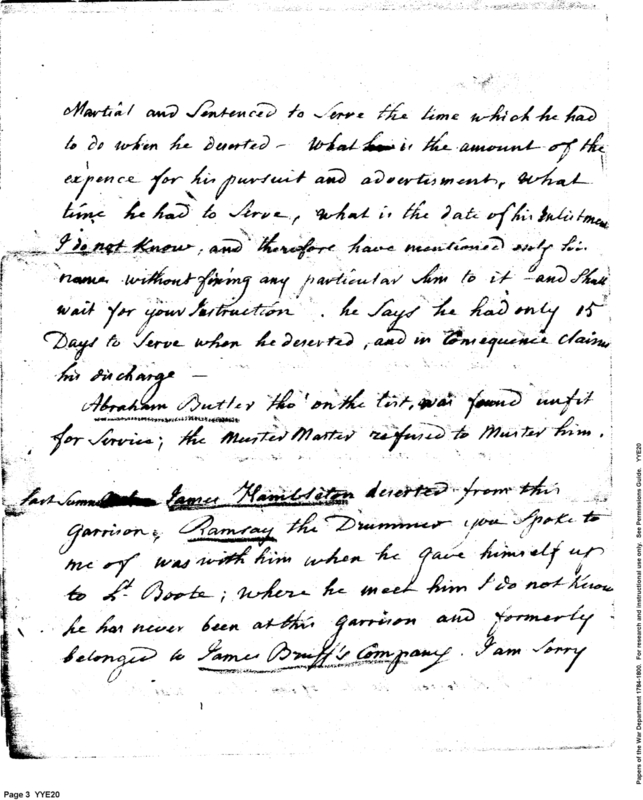 Martial and Sentenced to Serve the time which he had
to do when he deserted – What is the amount of the
expence for his pursuit and advertisment, What
time he had to Serve, what is the date of his Inlistment
I do not Know, and therefore have mentioned only his
name without fixing any particular Sum to it – and Shall
wait for your Instruction . he Says he had only 15
Days to Serve when he deserted, and in Consequence claims
his discharge –
Abraham Butler tho' on the list, was found unfit
for Service; the Muster Master refused to Muster him.
last Summer James Hambleton deserted from this
Garrison, Ramsay the Drummer you Spoke to
me of was with him when he gave himself up
to Lt. Boote; where he meet him I do not Know
he has never been at this garrison and formerly
belonged to James Bruff's Company. I am Sorry
Page 3 YYE20
Papers of the War Department 1784-1800. For research and instructional use only. See Permission Guide. YYE20